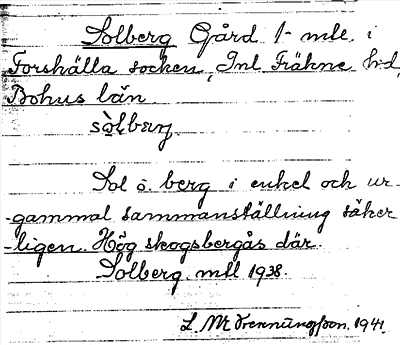 Solberg Gård 1 mtl. i
Forshälla socken, Inl. Fräkne hd,
Bohus län
sòlbærg.
Sol o. berg i enkel och ur-
gammal sammanställning säker-
ligen. Hög skogsbergås där.
Solberg. mtl 1938.
L. M. 1941.